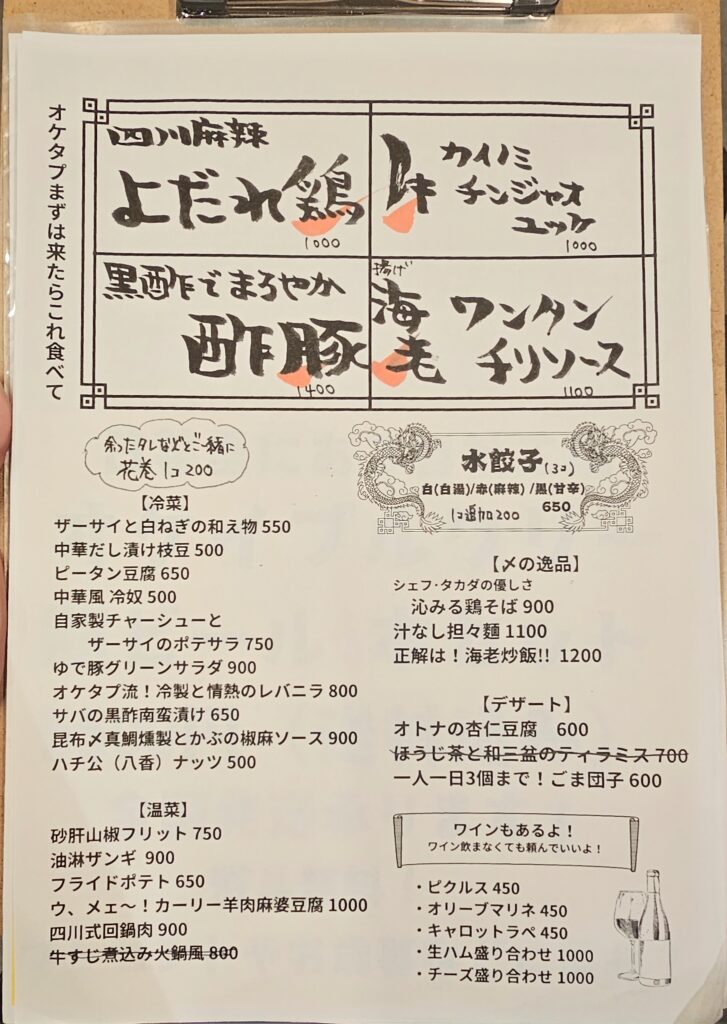 オケタプまずは来たらこれ食べて
四川麻辣
よだれ鶏
1000
カイノミ
チンジャオ
ユッケ
1000
黒酢でまろやか
酢豚
1400
揚げ
海老
ワンタン
チリソース
1100
余ったタレなどとご一緒に
花巻 1コ 200
【冷菜】
ザーサイと白ねぎの和え物 550
中華だし漬け枝豆 500
ピータン豆腐 650
中華風 冷奴 500
自家製チャーシューと
ザーサイのポテサラ 750
ゆで豚グリーンサラダ 900
オケタプ流！冷製と情熱のレバニラ 800
サバの黒酢南蛮漬け 650
昆布〆真鯛燻製とかぶの椒麻ソース 900
ハチ公（八香）ナッツ 500
【温菜】
砂肝山椒フリット 750
油淋ザンギ 900
フライドポテト 650
ウ、メェ〜！カーリー羊肉麻婆豆腐 1000
四川式回鍋肉 900
牛すじ煮込み火鍋風 800
水餃子(3コ)
白(白湯)/赤(麻辣)/黒(甘辛)
650
1コ追加200
【〆の逸品】
シェフ･タカダの優しさ
沁みる鶏そば 900
汁なし担々麺 1100
正解は！海老炒飯!! 1200
【デザート】
オトナの杏仁豆腐 600
ほうじ茶と和三盆のティラミス 700
一人一日3個まで！ごま団子 600
ワインもあるよ！
ワイン飲まなくても頼んでいいよ！
・ピクルス 450
・オリーブマリネ 450
・キャロットラペ 450
・生ハム盛り合わせ 1000
・チーズ盛り合わせ 1000